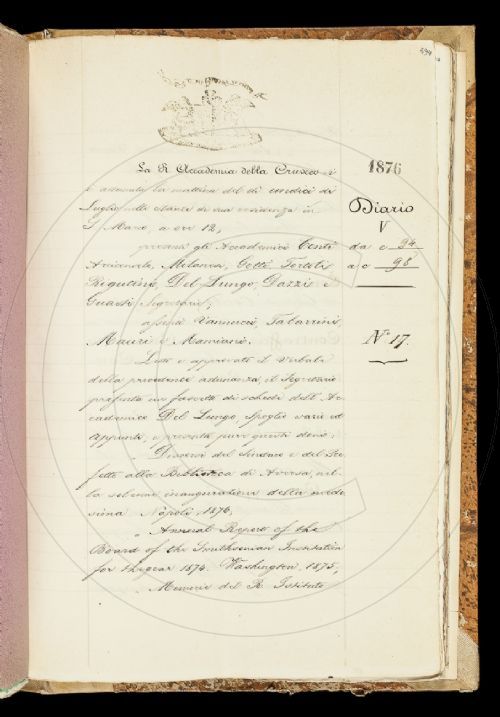 294
La R. Accademia della Crusca si
è adunata la mattina del dì undici di
Luglio nelle stanze di sua residenza in
S. Marco, a ore 12,
presenti gli Accademici Conti
Arciconsolo, Milanesi, Gotti, Tortoli,
Rigutini, Del Lungo, Dazzi e
Guasti Segretario;
assenti Vannucci, Tabarrini,
Mauri e Mamiani.
Letto e approvato il Verbale
della precedente adunanza, il Segretario
presenta un fascetto di schede dell'Ac-
cademico Del Lungo, spoglio vario ed
appunti, e presenta pure questi doni:
Discorsi del Sindaco e del Pre-
fetto alla Biblioteca di Aversa, nel-
la solenne inaugurazione della mede-
sima. Napoli, 1876,
Annual Report of the
Board of the Smithsonian Institution
for the year 1874. Washington, 1875,
Memorie del R. Istituto
1876
Diario
V
da c 94
a c 98
N.° 17.